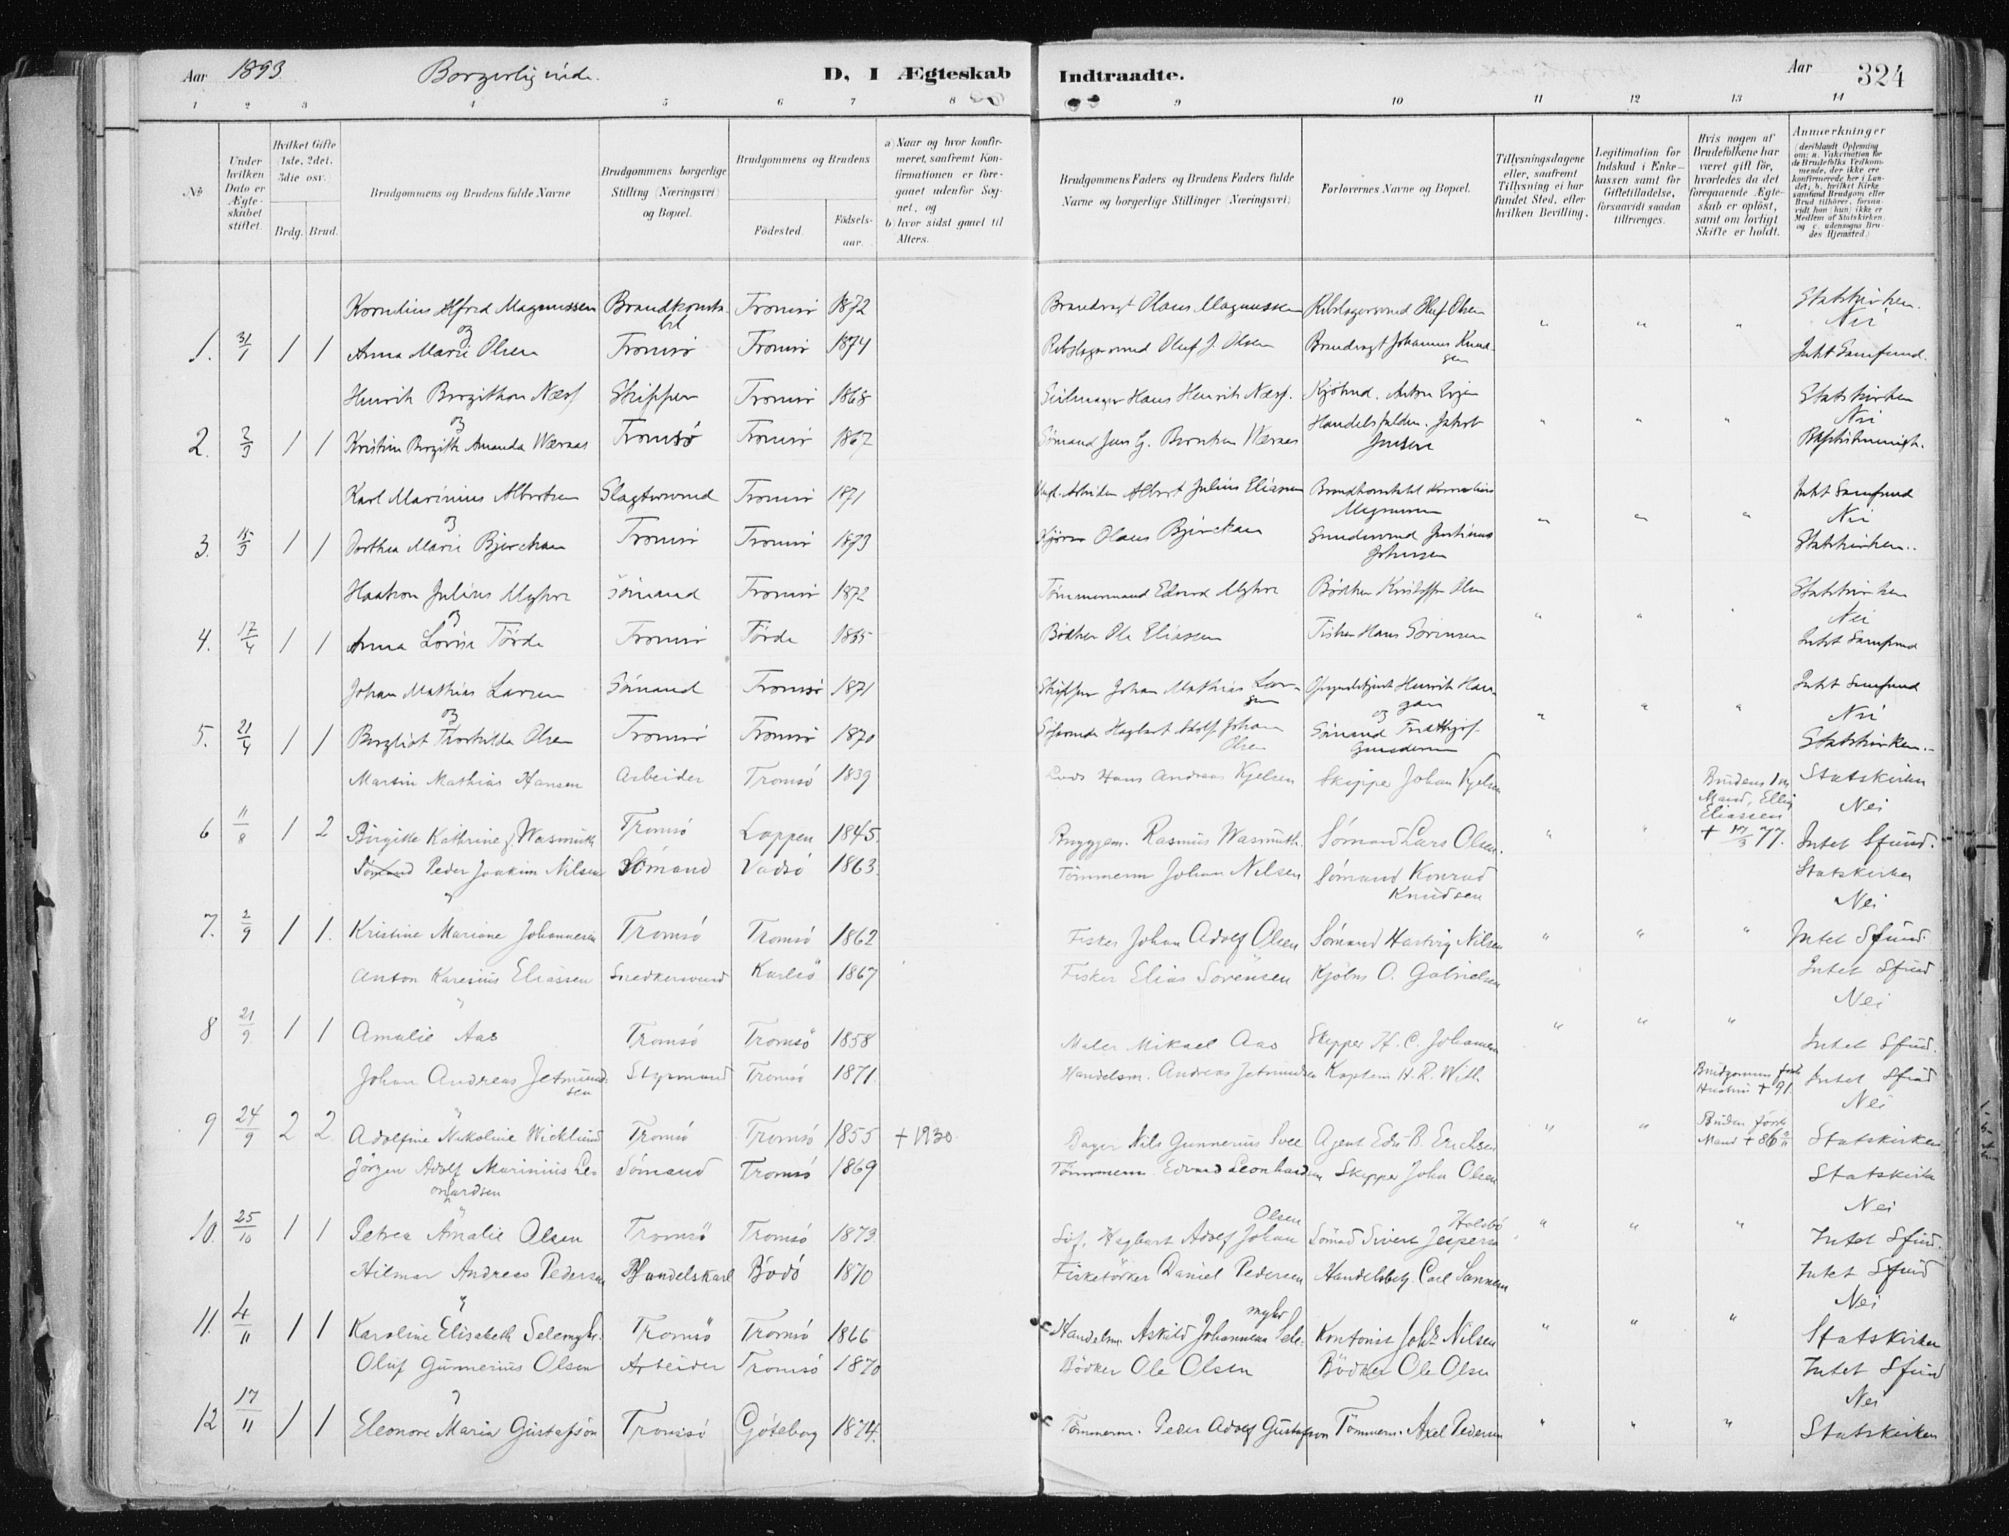 Aar 1893 Borgerlig viede. D, I Ægteskab Indtraadte. Aar 324
1 2 3 4 5 6 7 8 9 10 11 12 13 14
No
Under hvilken Dato er Ægteskabet stiftet.
Hvilket Gifte (1ste, 2det, 3die osv.)
Brdg. Brud.
Brudgommens og Brudens fulde Navne
Brudgommens borgerlige Stilling (Næringsvei) og Bopæl.
Brudgommens og Brudens
Födested. Födselsaar.
a) Naar og hvor konfirmeret, saafremt Konfirmationen er foregaaet udenfor Sognet, og
b) hvor sidst gaaet til Alters.
Brudgommens Faders og Brudens Faders fulde Navne og borgerlige Stillinger (Næringsvei)
Forlovernes Navne og Bopæl.
Tillysningsdagene eller, saafremt Tillysning ei har fundet Sted, efter hvilken Bevilling.
Legitimation for Indskud i Enkekassen samt for Giftetilladelse, forsaavidt saadan tiltrænges.
Hvis nogen af Brudefolkene har været gift för, hvorledes da det foregaaende Ægteskab er oplöst, samt om lovligt Skifte er holdt.
Anmærkninger (deriblandt Oplysning om: a. Vakcination for de Brudefolks Vedkommende, der ikke ere konfirmerede her i Landet; b. hvilket Kirkesamfund Brudgom eller Brud tilhörer, forsaavidt han (hun) ikke er Medlem af Statskirken, og c. udensogns Brudes Hjemsted.)
Kornelius Alfred Magnussen Brandkonstabel Tromsö 1872 Brandvagt Olaus Magnussen Rebslagersvend Oluf Olsen Statskirken
og Nei
1. 31/1 1 1 Anna Marie Olsen Tromsö Tromsö 1874 Rebslagersvend Oluf J. Olsen Brandvagt Johannes Intet Samfund.
Henrik Næss Skipper Tromsö 1868 Seilmager Hans Henrik Næss. Anton Statskirken
og Nei
2. 2/3 1 1 Kristine Amanda Wernes Tromsö Tromsö 1867 Sömand Jens G. Wernes Jakob Jensen
Karl Marinius Albertsen Slagtersvend Tromsö 1871 Albert Julius Eliassen Kornelius Magnussen Intet Samfund
og Nei
3. 15/3 1 1 Dorthea Marie Tromsö Tromsö 1873 Olaus Johnsen Statskirken.
Haakon Julius Myhre Sömand Tromsö 1872 Tömmermand Edvard Myhre Bödker Kristoffer Olsen Statskirken
og Nei
4. 17/4 1 1 Anna Lovise Förde Tromsö Förde 1865 Bödker Ole Eliassen Fisker Hans Sörensen Intet Samfund
Johan Mathias Larsen Sömand Tromsö 1871 Skipper Johan Mathias Larsen Henrik Hansen Intet Samfund
og og Nei
5. 21/4 1 1 Thorhilda Olsen Tromsö Tromsö 1870 Hagbart Adolf Johan Olsen Sömand Statskirken.
Martin Mathias Hansen Arbeider Tromsö 1839 Hans Andreas Kjelsen Skipper Johan Kjelsen Brudens 1ste Mand, Eliassen Statskirken
Nei
6 11/8 1 2 Birgitte Kathrine f. Wasmuth Tromsö Loppen 1845. Rasmus Wasmuth. Sömand Lars Olsen. Intet Sfund.
Sömand Peder Joakim Nilsen Sömand Vadsö 1863 Tömmerm Johan Nilsen Sömand Konrad Knudsen Statskirken
Nei
7. 2/9 1 1. Kristine Mariane Johannesen Tromsö Tromsö 1862 Fisker Johan Adolf Olsen Sömand Hartvig Nilsen Intet Sfund
Anton Karesius Eliassen Snedkersvend Karlsö 1867 Fisker Elias Sörensen Kjöbm O. Gabrielsen Intet Sfund
Nei
8 21/9 1 1 Amalie Aas Tromsö Tromsö 1858 Maler Mikael Aas Skipper H. C. Johansen Intet Sfund.
Johan Andreas Jetmundsen Styrmand Tromsö 1871. Handelsm. Andreas Jetmundsen Kaptein H. R. With. Brudgommens förste Hustru † 91. Intet Sfund
Nei
9 24/9 2 2 Adolfine Nikoline Wicklund Tromsö Tromsö 1855 † 1930. Nils Gunnerius Agent Edv B. Erichsen Brudens förste Mand † 86 Statskirken
Jörgen Adolf Marinius Leonhardsen Sömand Tromsö 1869 Tömmerm Edvard Leonhardsen Skipper John Olsen Statskirken
Nei
10. 25/10 1 1 Petrea Amalie Olsen Tromsö Tromsö 1873. Hagbart Adolf Johan Olsen Sömand Sivert Jespersen Intet Sfund.
Hilmar Andreas Pedersen Handelskarl Bodö 1870 Fisketörker Daniel Pedersen Handelsbetj. Carl Intet Sfund
Nei
11. 4/11 1 1 Karoline Elisabeth Selemyhr. Tromsö Tromsö 1866 Handelsm Askild Johannesen Selemyhr Kontorist Joh. Nilsen Statskirken
Oluf Gunnerius Olsen Arbeider Tromsö 1870 Bödker Ole Olsen Bödker Ole Olsen Intet Sfund
Nei
12 17/11 1 1 Eleonore Maria Gustafson Tromsö Göteborg 1874. Tömmerm. Peder Adolf Gustafson Tömmerm. Axel Pedersen Statskirken